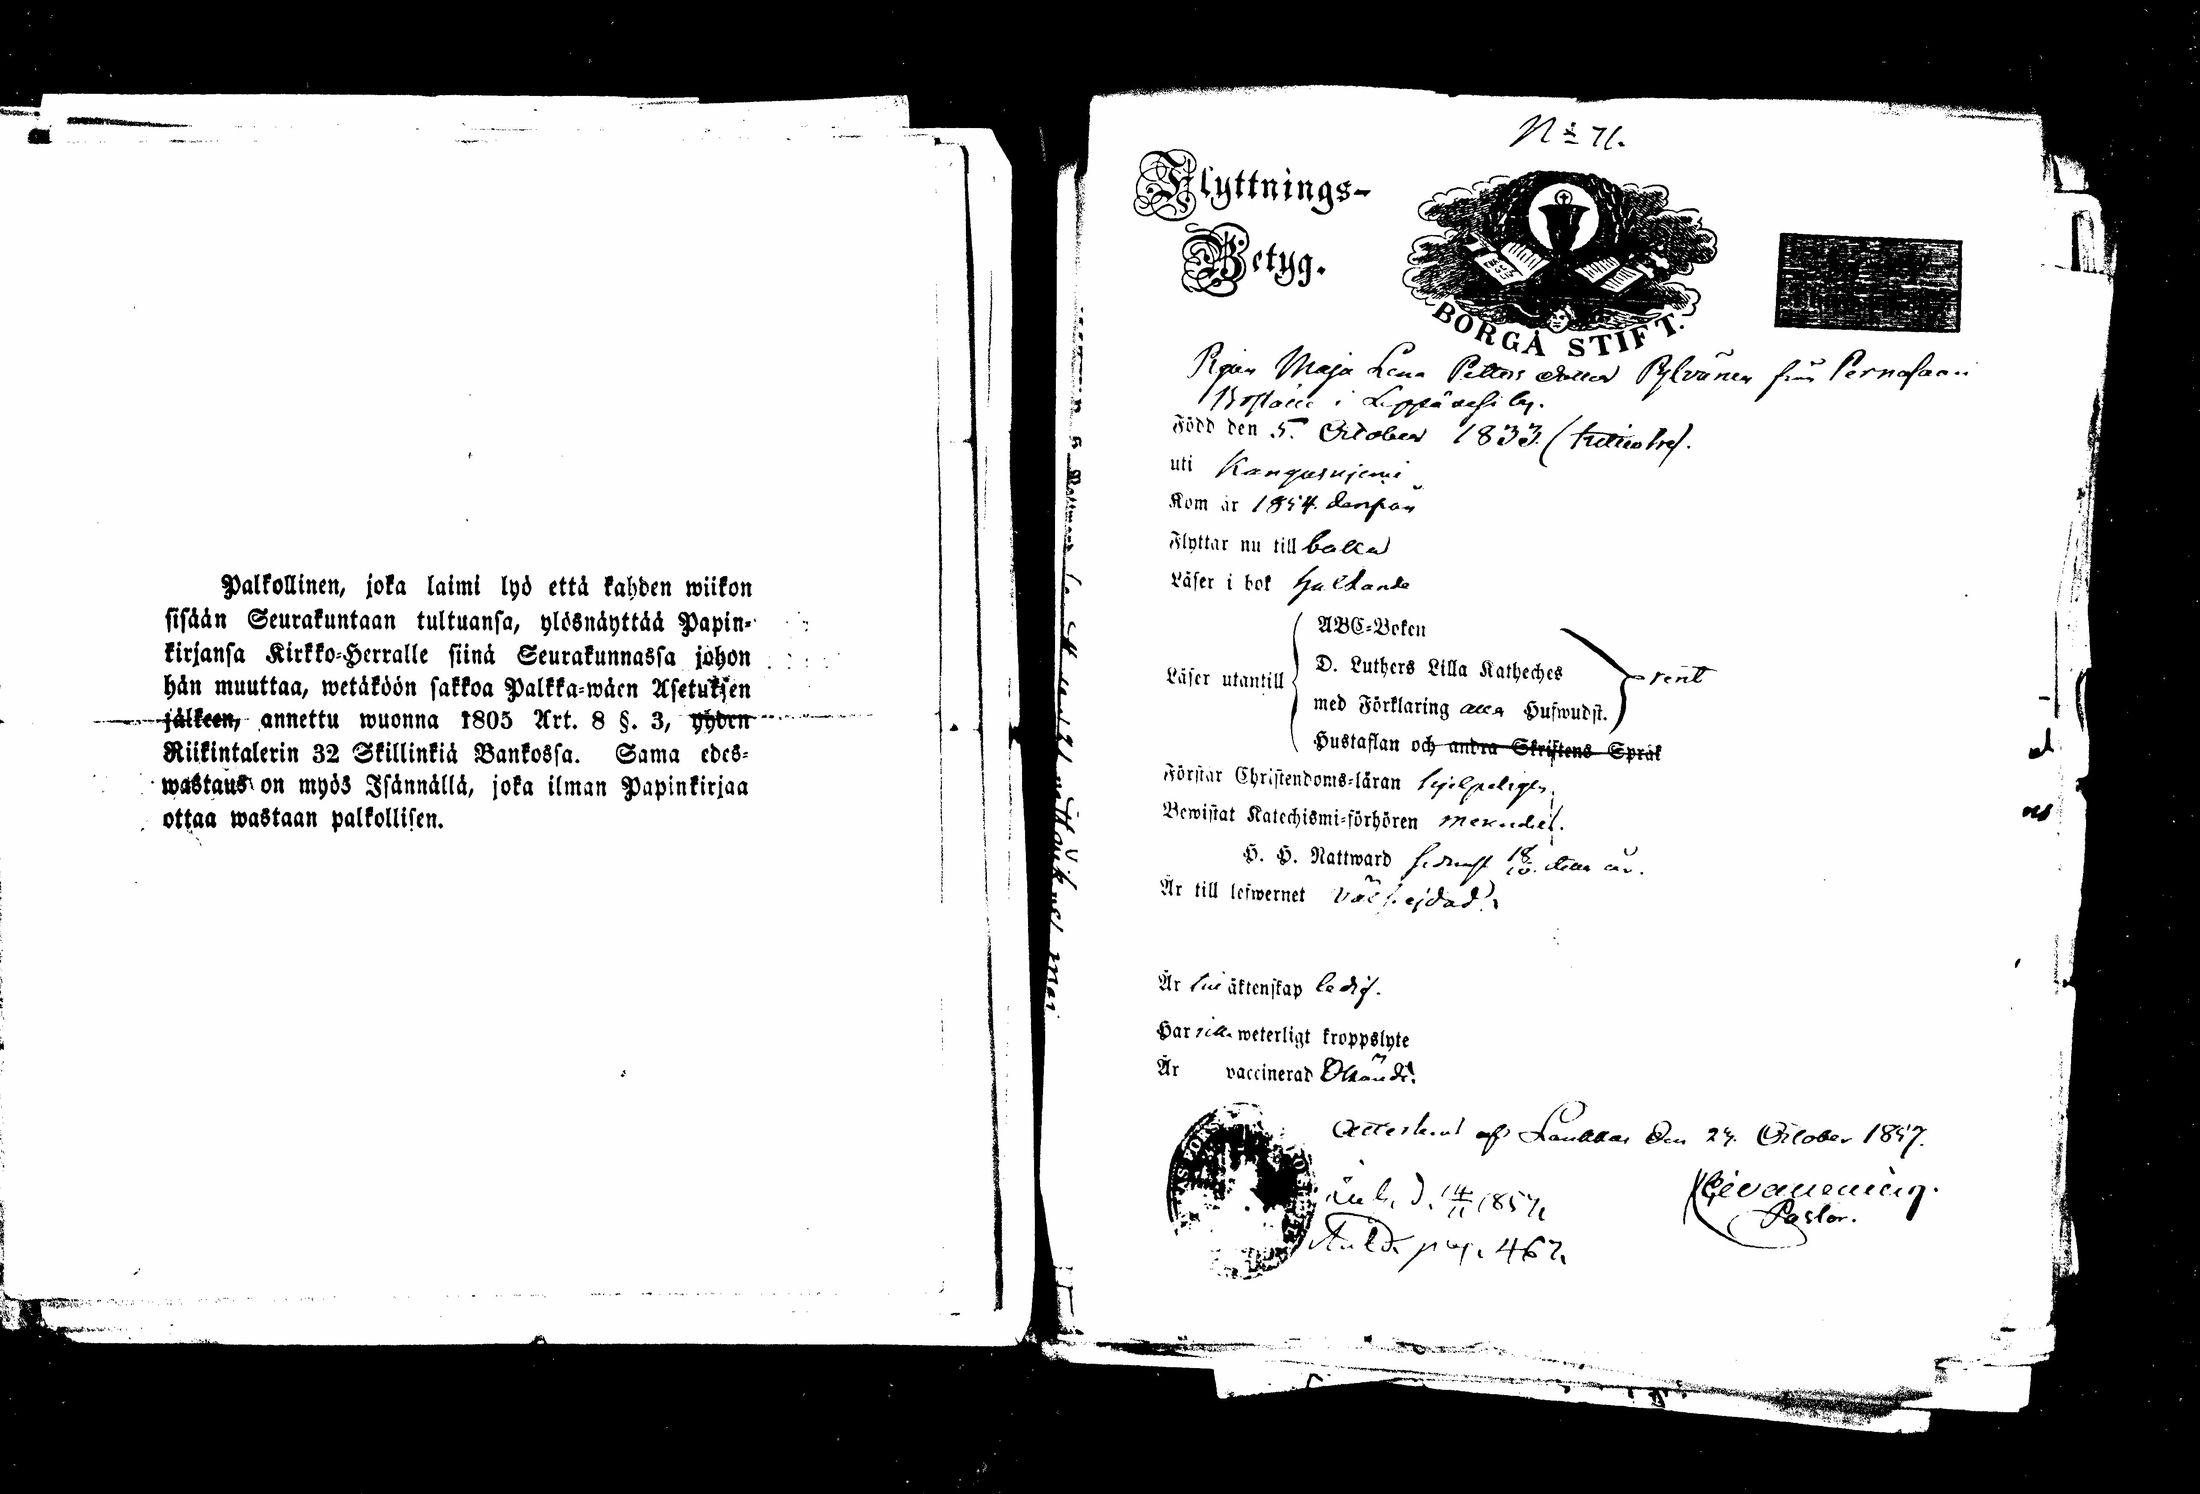 Palkollinen, joka laimi lyö että kahden wiikon
sisään Seurakuntaan tultuansa, ylösnäyttää Papin-
kirjansa Kirkko-Herralle siinä Seurakunnassa johon
hän muuttaa, wetäköön sakkoa Palkka-wäen Asetuksen
jälkeen, annettu wuonna 1805 Art. 8 §. 3, yhden
Riikintalerin 32 Skillinkiä Bankossa. Sama edes-
wastaus on myös Isännällä, joka ilman Papinkirjaa
ottaa wastaan palkollisen.
No 71.
Flyttnings-
Betyg.
BORGÅ STIFT.
Pigan Maja Lena Petters dotter Pylvänen från
i by.
Född den 5. October 1833.
uti Kangasniemi
Kom år 1854 derifrån
Flyttar nu till baka
Läser i bok
ABC-Boken
D. Luthers Lilla Katheches
Läser utantill
rent
med Förklaring Hufwudst.
Hustaflan och andra Skriftens Språk
Förstår Christendoms-läran hjelpeligen.
Bewistat Katechismi-förhören
H. H. Nattward 18/10 detta år.
Är till lefwernet välfrejdad.
Är till äktenskap ledig.
Har weterligt kroppslyte
Är vaccinerad Okändt.
Attesterad af Laukkas den 24. October 1857.
Inl. d. 14/11 1857.
Pastor.
pag. 467.